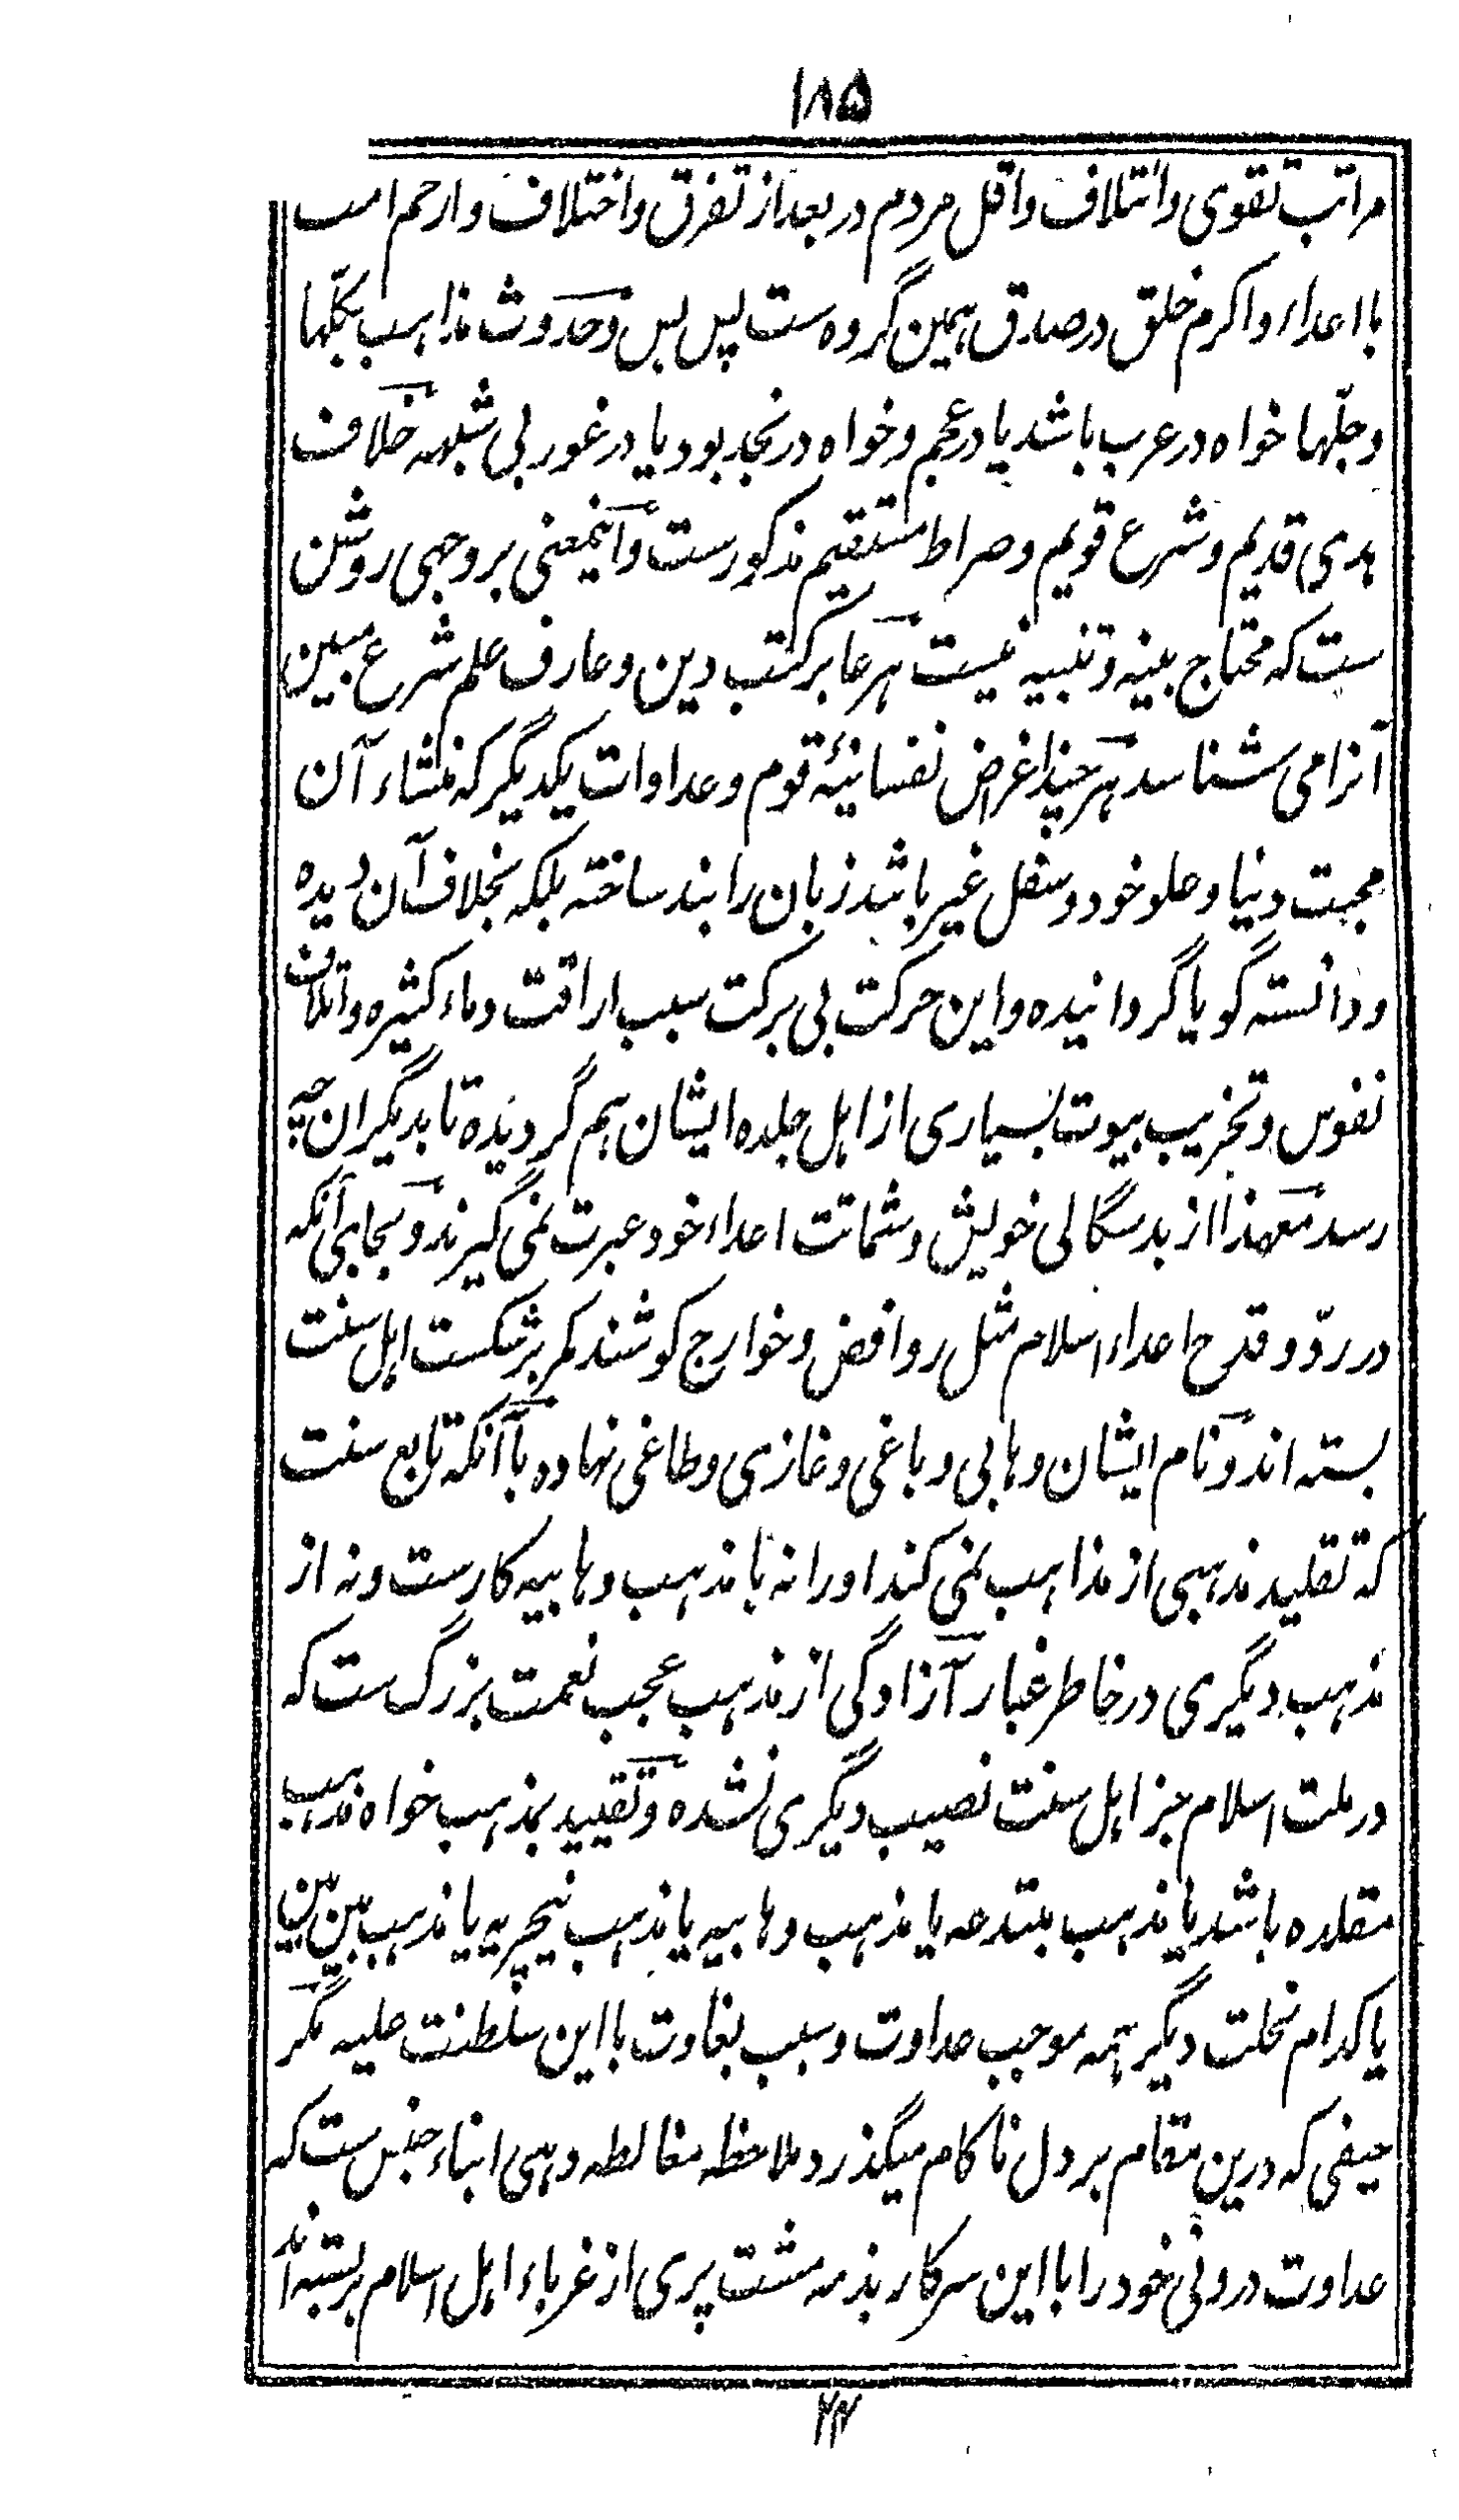 ۱۸۵
مراتب تقوی وائتلاف واقل مردم در بعد از تفرق واختلاف وارحم امت
با اعداء واکرم خلق در صدق همین گروه ست پس بس وحدوث مذاهب بکلها
وجلها خواه در عرب باشد یا در عجم وخواه در نجد بود یا در غور بی شبهه خلاف
هدی قدیم وشرع قویم وصراط مستقیم مذکورست واینمعنی بروجهی روشن
ست که محتاج بینه وتنبیه نیست هر عابر کتب دین وعارف علم شرع مبین
آنرا می شناسد هر چند اغراض نفسانیهٔ قوم وعداوات یکدیگر که منشاء آن
محبت دنیا وعلو خود وسفل غیر باشد زبان را بند ساخته بلکه بخلاف آن دیده
ودانسته گویا گردانیده واین حرکت بی برکت سبب اراقت دماء کثیره واتلاف
نفوس وتخریب بیوت بسیاری از اهل جلده ایشان هم گردیده تا بدیگران چه
رسد معهذا از بدسگالی خویش وشماتت اعداء خود عبرت نمی گیرند وبجای آنکه
در ردّ وقدح اعداء اسلام مثل روافض وخوارج کوشند کمر بر شکست اهل سنت
بسته اند ونام ایشان وهابی وباغی وغازی وطاغی نهاده با آنکه تابع سنت
که تقلید مذهبی از مذاهب نمی کند او را نه با مذهب وهابیه کارست ونه از
مذهب دیگری در خاطر غبار آزادگی از مذهب عجب نعمت بزرگ ست که
در ملت اسلام جز اهل سنت نصیب دیگری نشده وتقیید بمذهب خواه مذهب
مقلده باشد یا مذهب مبتدعه یا مذهب وهابیه یا مذهب نیچریه یا مذهب بین بین
یا کدام نحلت دیگر همه موجب عداوت وسبب بغاوت با این سلطنت علیه مگر
حیفی که درین مقام بر دل ناکام میگذرد ملاحظه مغالطه دهی ابناء جنس ست که
عداوت درونی خود را با این سرکار بذمه مشت پری از غرباء اهل اسلام بربسته اند
۲۴